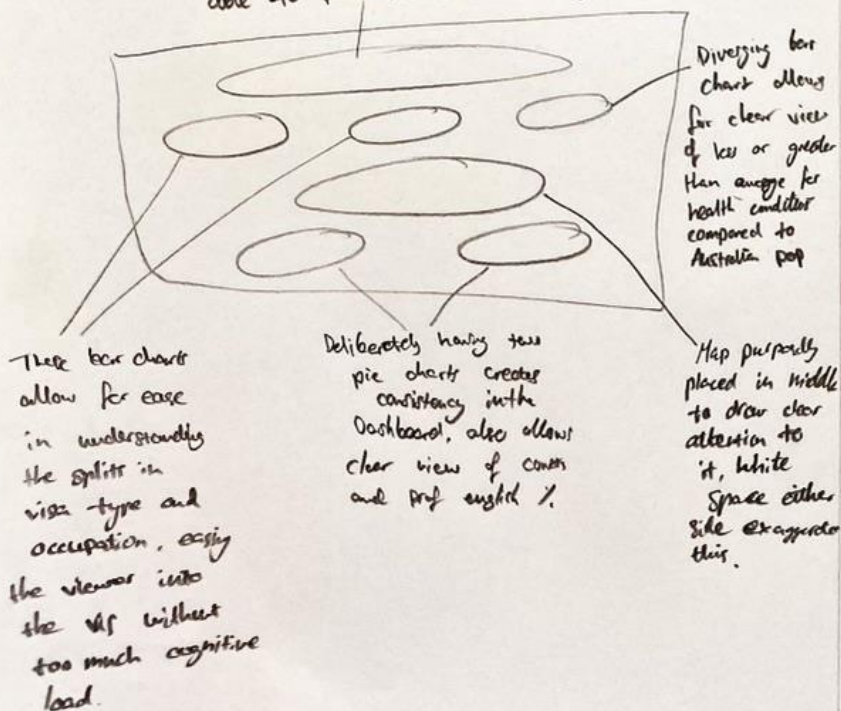 Diverging bar
chart allows
for clear view
of less or greater
than average for
health condition
compared to
Australia pop
These bar charts
allow for ease
in understanding
the splits in
visa type and
occupation, easing
the viewer into
the vis without
too much cognitive
load.
Deliberately having two
pie charts creates
consistency in the
Dashboard, also allows
clear view of
and prof english %.
Map purposely
placed in middle
to draw clear
attention to
it, white
space either
side exaggerates
this.